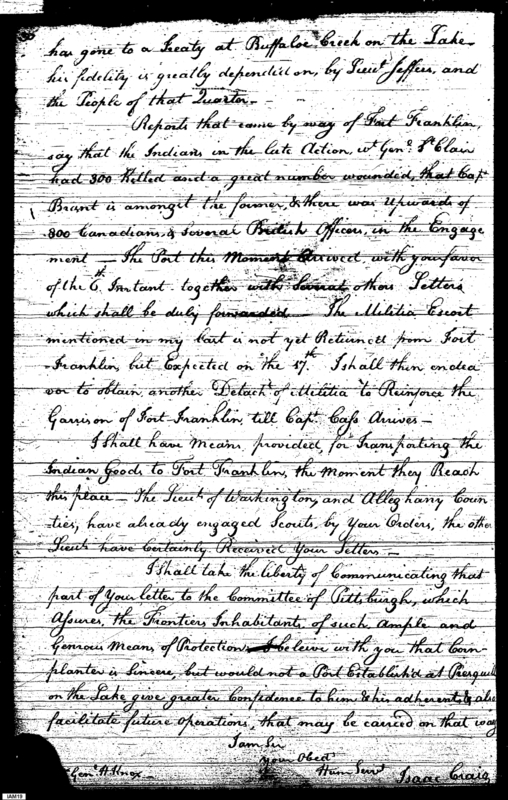 has gone to a Treaty at Buffaloe Creek on the Lake
his fidelity is greatly depended on, by Lieut Jeffers, and
the People of that Quarter –
Reports that came by way of Fort Franklin,
say that the Indians in the late Action, wt Genl St Clair
had 300 Killed and a great number wounded, that Capt
Brant is amongst the former, & there was Upwards of
300 Canadians, & Several British Officers, in the Engage
ment – The Post this Moment Arrived with your favor
of the 6th Instant together with Several others Letters
which shall be duly forwarded – The Militia Escort
mentioned in my last is not yet Returned from Fort
Franklin, but Expected on the 17th I shall then endea
vor to obtain, another Detacht of Militia to Reinforce the
Garrison of Fort Franklin, till Capt Cass Arrives –
I shall have Means provided, for Transporting the
Indian Goods to Fort Franklin, the Moment they Reach
this place – The Lieuts of Washington, and Alleghany Coun
ties, have already engaged Scouts, by Your Orders, the other
Lieuts have Certainly Received Your Letters –
I shall take the liberty of Communicating that
part of Your letter to the Committee of Pittsburgh, which
Assures, the Frontiers Inhabitants of such Ample and
Generous Means of Protection I beleive with you that Corn
planter is Sincere, but would not a Post Establish'd at Presquile
on the Lake give greater Confidence to him & his adherents & also
facilitate future Operations, that may be carried on that way
I am Sir
your Obedt
Hum Servt
Isaac Craig
Genl H Knox –
IAM19